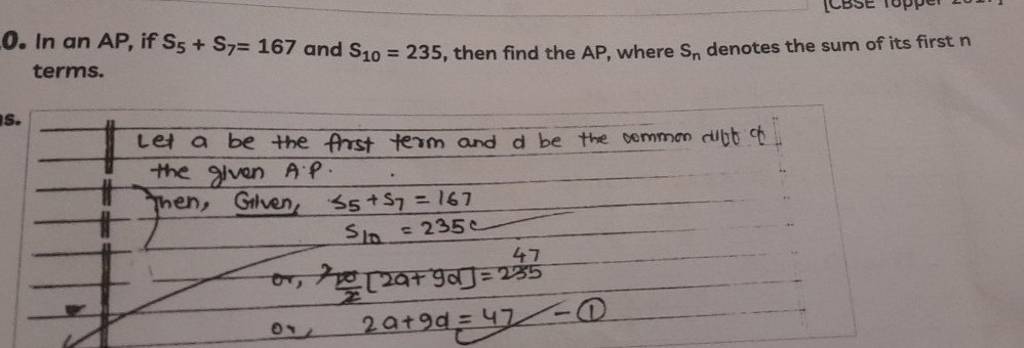 [CBSE Topper
0. In an AP, if S₅ + S₇= 167 and S₁₀ = 235, then find the AP, where Sₙ denotes the sum of its first n
terms.
s.
Let a be the first term and d be the common diff of
the given A.P.
Then, Given, S₅ + S₇ = 167
S₁₀ = 235
47
or, 10/2 [2a+9d] = 235
or, 2a+9d = 47 - ①